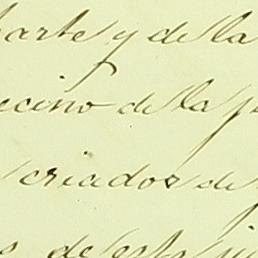 parte y de la
ecino de la p
criados de
s de esta ju